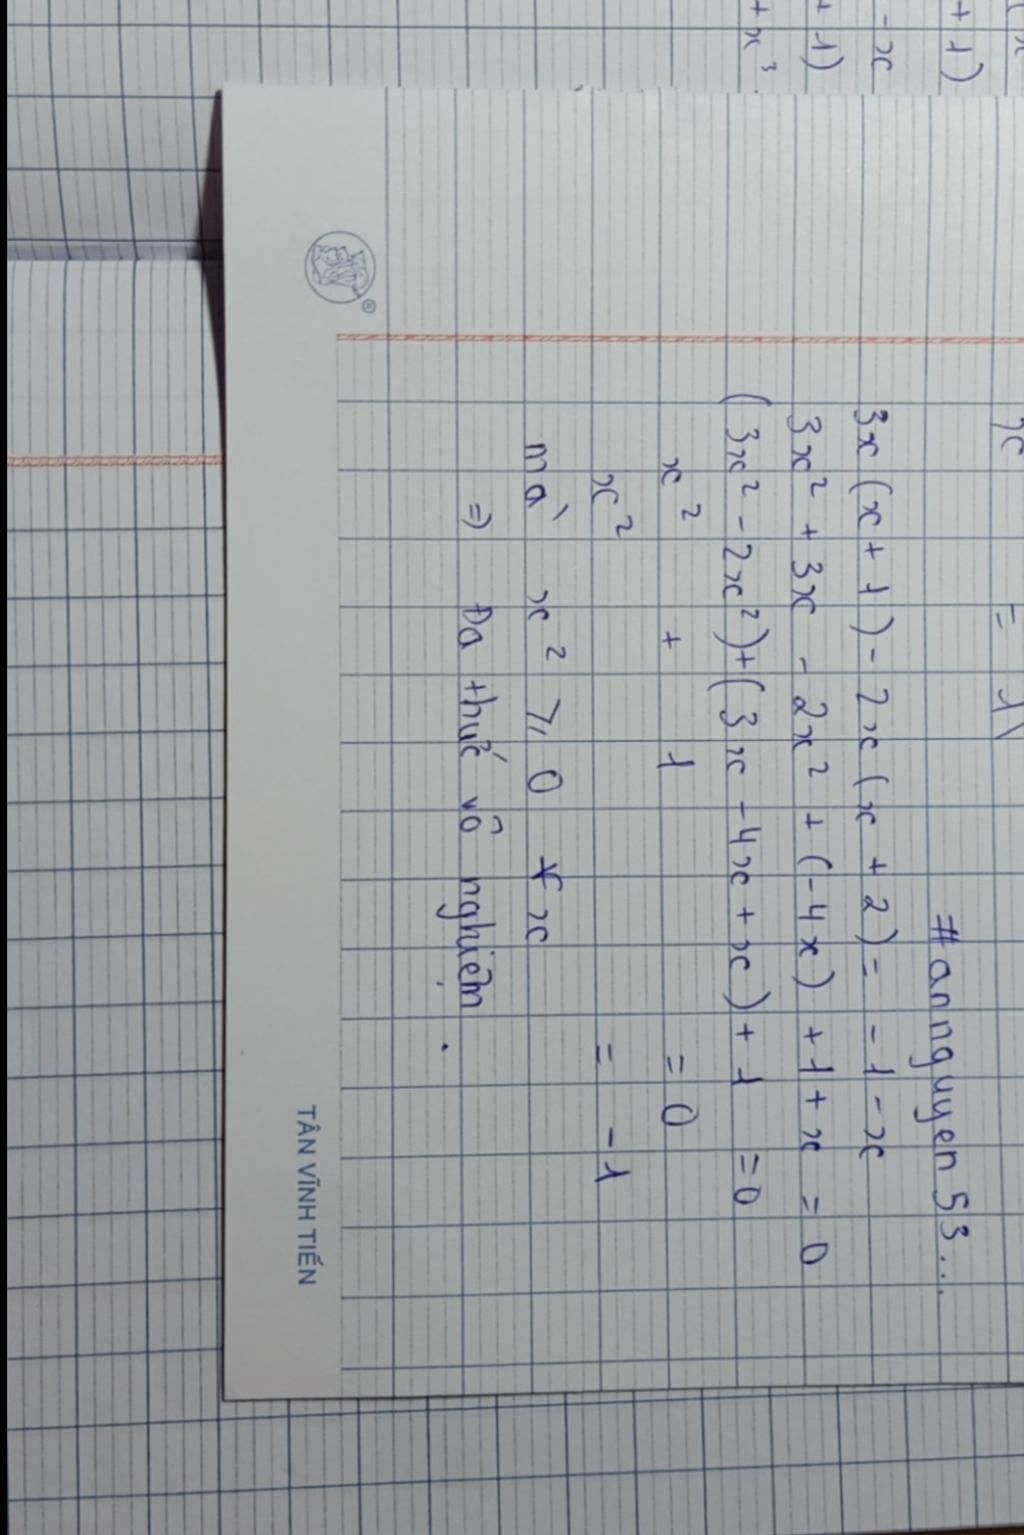 + 1)
- x
+ 1)
+ x³
x = 1
#annguyen53...
3x (x + 1) - 2x (x + 2) = -1 - x
3x² + 3x - 2x² + (-4x) + 1 + x = 0
(3x² - 2x²) + (3x - 4x + x) + 1 = 0
x² + 1 = 0
x² = -1
mà x² ⩾ 0 ∀x
=) Đa thức vô nghiệm.
®
TÂN VĨNH TIẾN